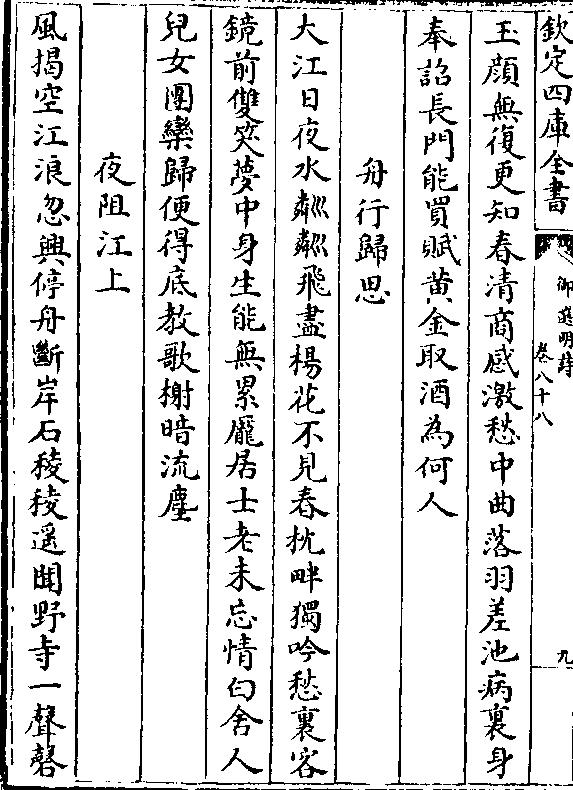 欽定四庫全書
御選明詩
卷八十八
九
玉顔無復更知春清商感激愁中曲落羽差池病裏身
奉詔長門能買賦黄金取酒為何人
舟行歸思
大江日夜水粼粼飛盡楊花不見春枕畔獨吟愁裏客
鏡前雙笑夢中身生能無累龎居士老未忘情白舍人
兒女團欒歸便得底教歌榭暗流塵
夜阻江上
風揭空江浪忽興停舟斷岸石稜稜遥聞野寺一聲磬